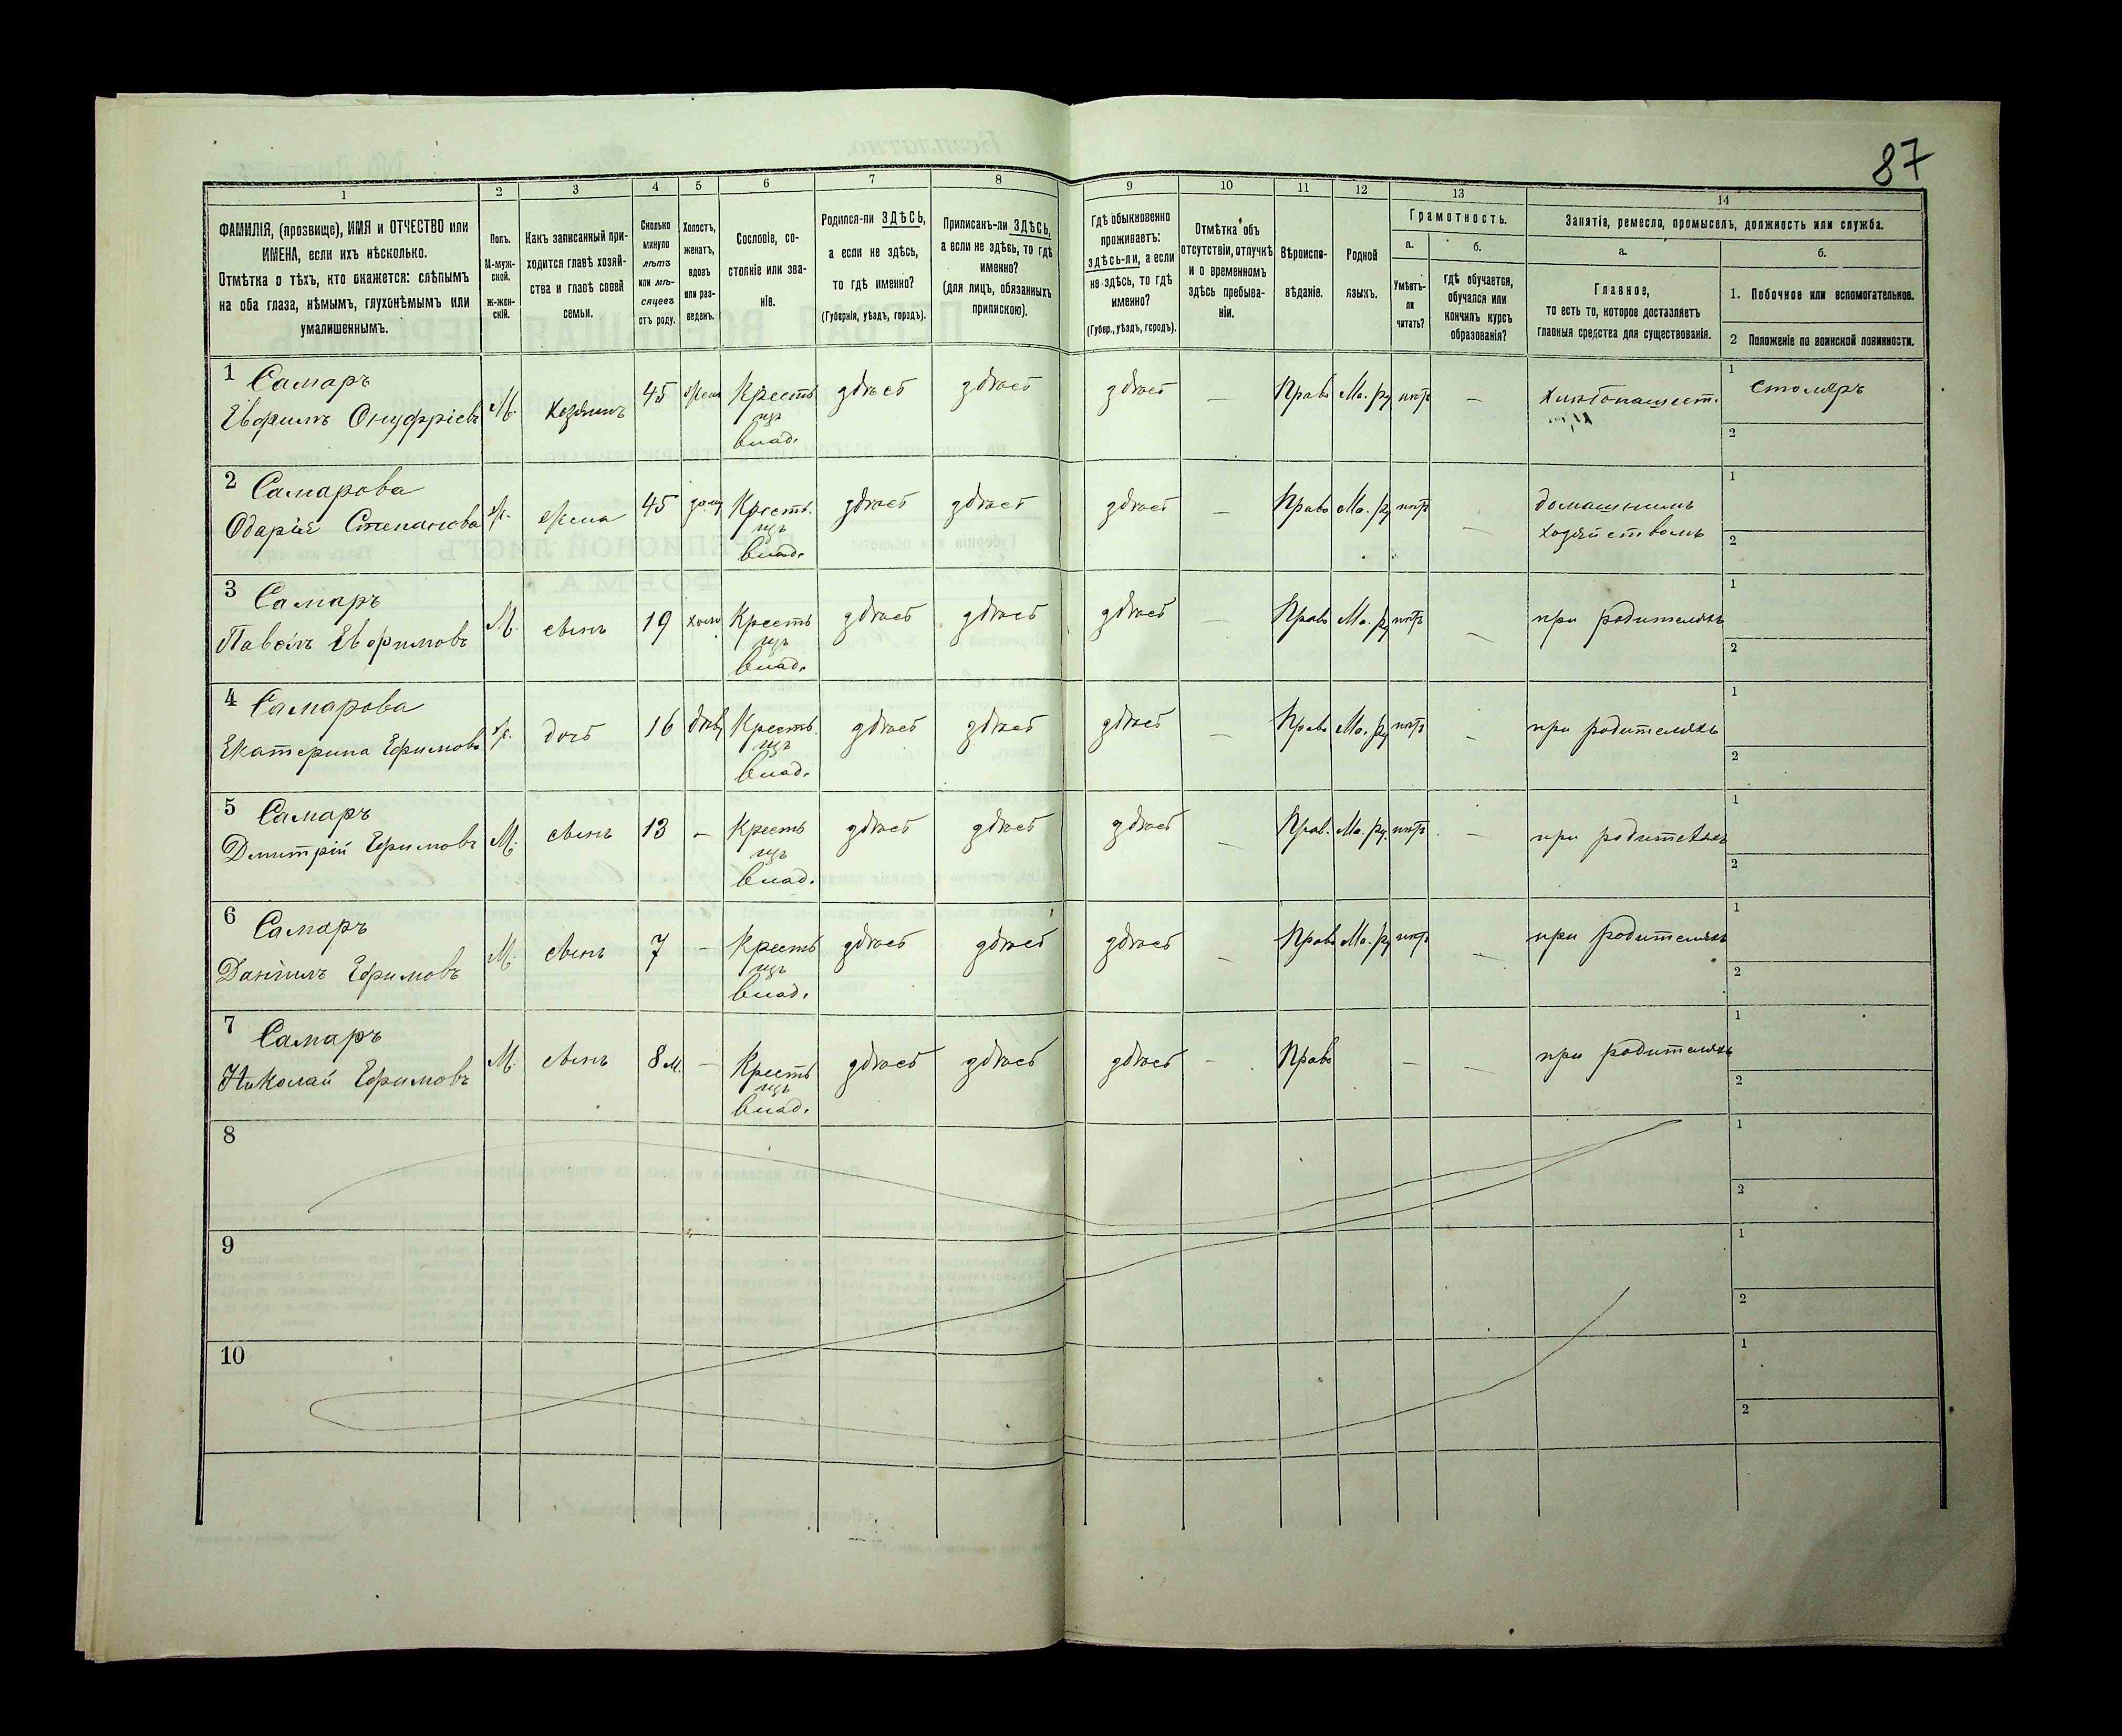 87
1 2 3 4 5 6 7 8 9 10 11 12 13 14
ФАМИЛІЯ, (прозвище), ИМЯ и ОТЧЕСТВО или
ИМЕНА, если ихъ нѣсколько.
Отмѣтка о тѣхъ, кто окажется: слѣпымъ
на оба глаза, нѣмымъ, глухонѣмымъ или
умалишеннымъ.
Полъ.
М-муж-
ской.
Ж-жен-
скій.
Какъ записанный при-
ходится главѣ хозяй-
ства и главѣ своей
семьи.
Сколько
минуло
лѣтъ
или мѣ-
сяцевъ
отъ роду.
Холостъ,
женатъ,
вдовъ
или раз-
веденъ.
Сословіе, со-
стояніе или зва-
ніе.
Родился-ли ЗДѢСЬ,
а если не здѣсь,
то гдѣ именно?
(Губернія, уѣздъ, городъ).
Приписанъ-ли ЗДѢСЬ,
а если не здѣсь, то гдѣ
именно?
(для лицъ, обязанныхъ
припискою).
Гдѣ обыкновенно
проживаетъ:
здѣсь-ли, а если
не здѣсь, то гдѣ
именно?
(Губер., уѣздъ, городъ).
Отмѣтка объ
отсутствіи, отлучкѣ
и о временномъ
здѣсь пребыва-
ніи.
Вѣроиспо-
вѣданіе.
Родной
языкъ.
Грамотность.
а.
Умѣетъ-
ли
читать?
б.
гдѣ обучается,
обучался или
кончилъ курсъ
образованія?
Занятія, ремесло, промыселъ, должность или служба.
а.
Главное,
то есть то, которое доставляетъ
главныя средства для существованія.
б.
1. Побочное или вспомогательное.
2 Положеніе по воинской повинности.
1 Самаръ
Евфимъ Онуфріевъ М. Хозяинъ 45 жен Кресть здѣсь здѣсь здѣсь — Прав Ма. ру нѣтъ — Хлѣбопашест. 1 Столяръ
влад.
2
2 Самарова
Одарія Степанова ж. жена 45 зам Кресть. здѣсь здѣсь здѣсь — Прав Ма. ру нѣтъ — домашнимъ 1
влад. хозяйствомъ 2
3 Самаръ
Павелъ Евфимовъ М. сынъ 19 хол Кресть здѣсь здѣсь здѣсь — Прав Ма. ру нѣтъ — при родителяхъ 1
влад. 2
4 Самарова
Екатерина Ефимова ж. дочь 16 дѣв Кресть здѣсь здѣсь здѣсь — Прав Ма. ру нѣтъ — при родителяхъ 1
влад. 2
5 Самаръ
Дмитрій Ефимовъ М. сынъ 13 — Кресть здѣсь здѣсь здѣсь — Прав. Ма. ру. нѣтъ — при родителяхъ 1
влад. 2
6 Самаръ
Даніилъ Ефимовъ М. сынъ 7 — Кресть здѣсь здѣсь здѣсь — Прав Ма. ру нѣтъ — при родителяхъ 1
влад. 2
7 Самаръ
Николай Ефимовъ М. сынъ 8 м. — Кресть здѣсь здѣсь здѣсь — Прав — — при родителяхъ 1
влад. 2
8 1
2
9 1
2
10 1
2